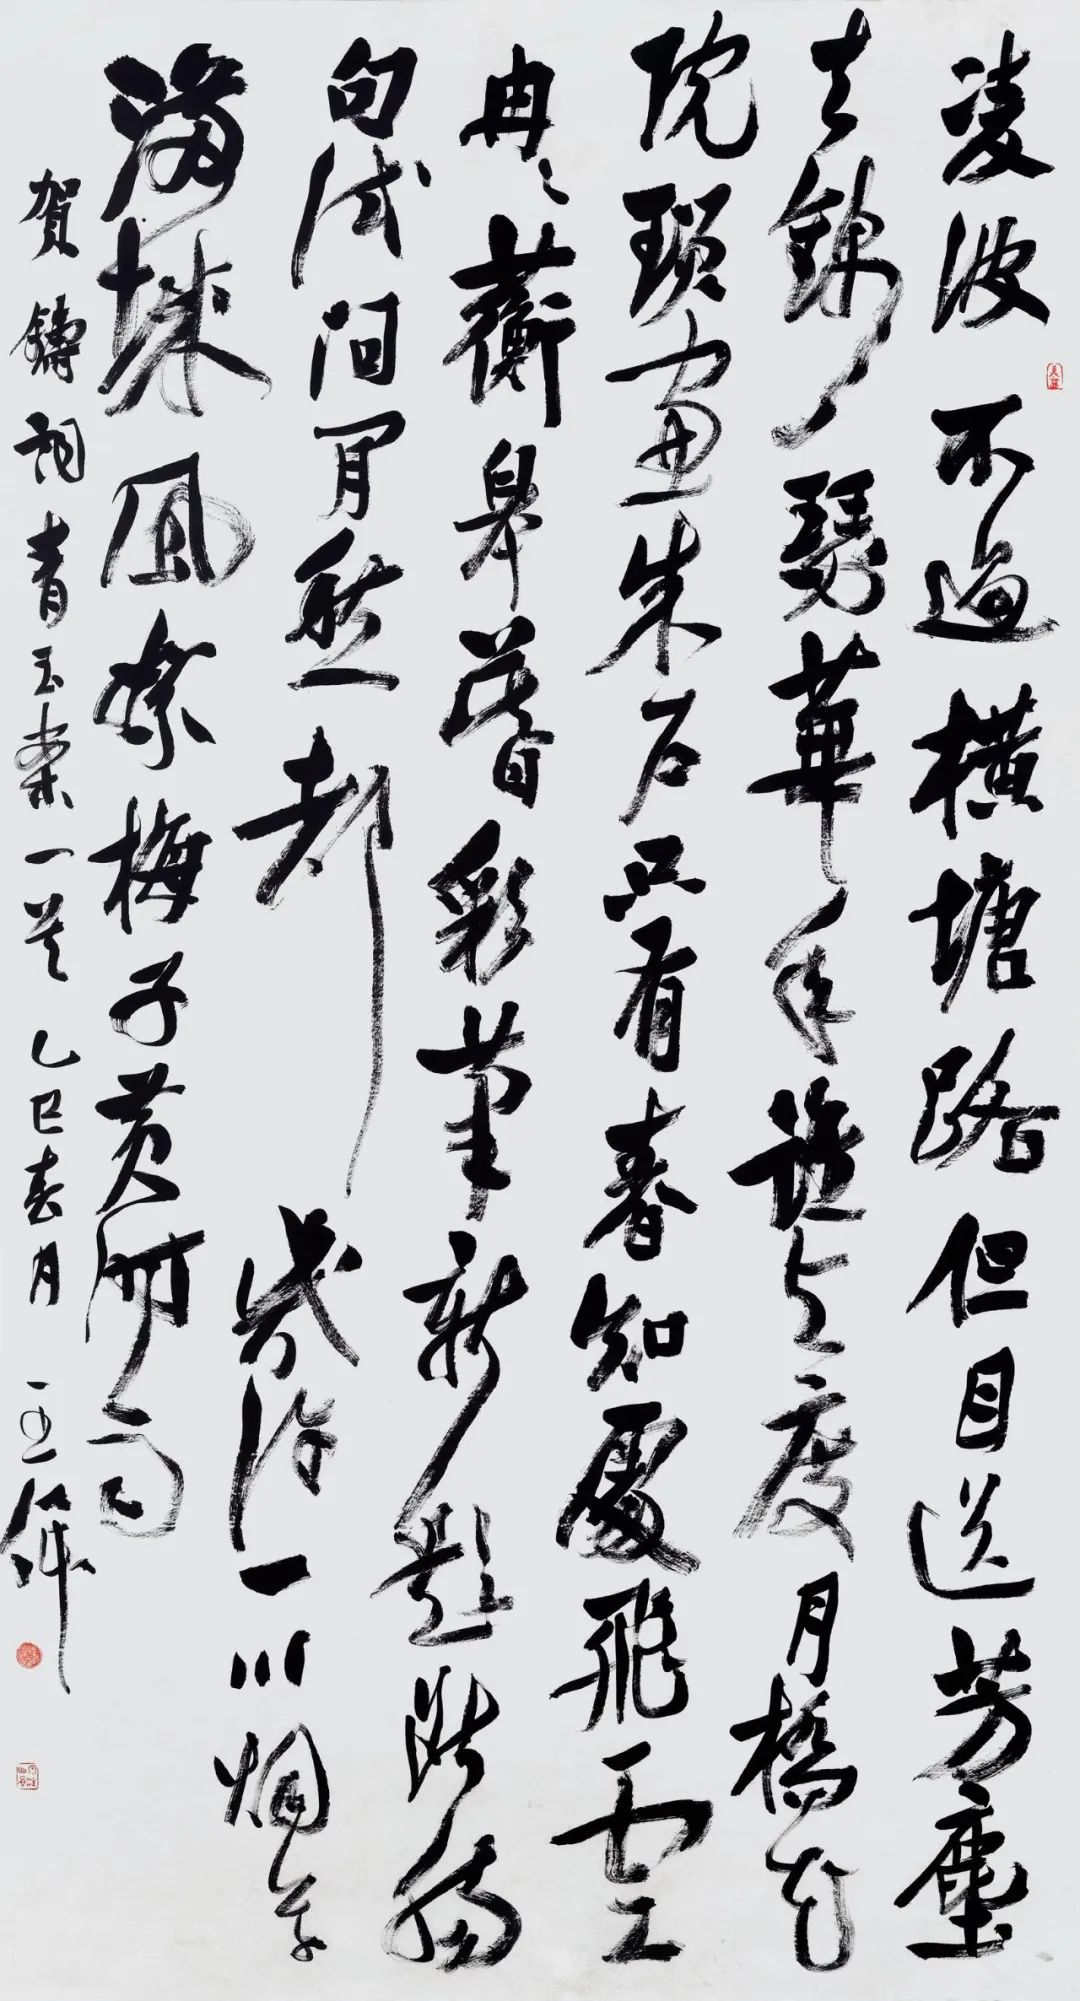 凌波不過橫塘路但目送芳塵
去錦瑟華年誰与度月橋花
院瑣窗朱戶只有春知處飛雲
冉々蘅皋暮彩筆新題斷腸
句試問閒愁都幾許一川烟草
滿城風絮梅子黃時雨
賀鑄詞青玉案一首 乙巳春月